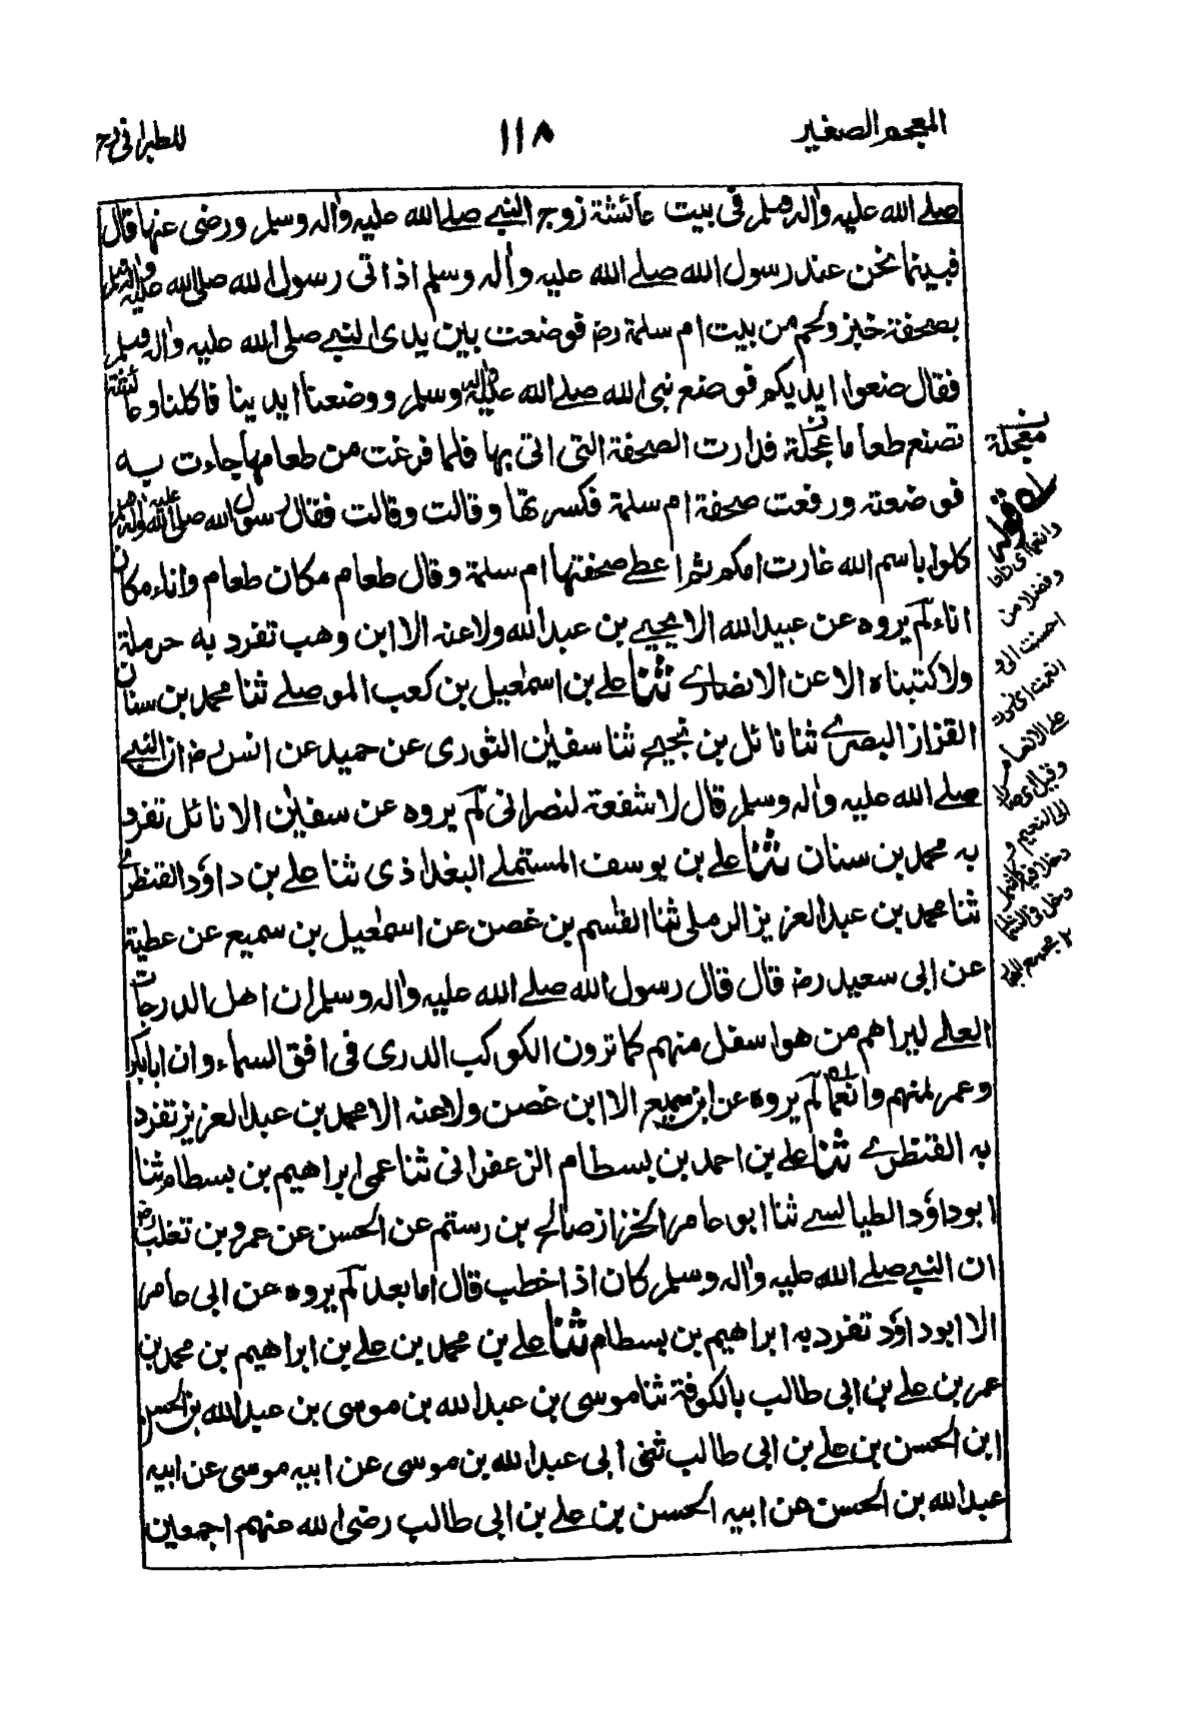 المعجم الصغير
١١٨
للطبراني رح
صلے الله عليه واٰله وسلم فى بيت عائشة زوج النبے صلے الله عليه واٰله وسلم ورضى عنها قال
فبينما نحن عند رسول الله صلے الله عليه واٰله وسلم اذ اتى رسول الله صلى الله عليه واٰله وسلم
بصحفة خبز ولحم من بيت ام سلمة رض فوضعت بين يدى النبے صلى الله عليه واٰله وسلم
فقال ضعوا ايديكم فوضع نبى الله صلے الله عليه واٰله وسلم ووضعنا ايدينا فاكلنا وعائشة
تصنع طعاما عجلة فدارت الصحفة التى اتى بها فلما فرغت من طعامها جاءت به
فوضعته ورفعت صحفة ام سلمة فكسرتها وقالت وقالت فقال رسول الله صلى الله عليه واٰله وسلم
كلوا باسم الله غارت امكم ثم اعطے صحفتها ام سلمة وقال طعام مكان طعام واناء مكان
اناء لم يروه عن عبيد الله الا يحيے بن عبد الله ولا عنه الا ابن وهب تفرد به حرملة
ولا كتبناه الا عن الانصارے ثنا علے بن اسمٰعيل بن كعب الموصلے ثنا محمد بن سنان
القزاز البصرے ثنا نائل بن نجيح ثنا سفيٰن الثورى عن حميد عن انس رض ان النبے
صلے الله عليه واٰله وسلم قال لا شفعة لنصرانى لم يروه عن سفيٰن الا نائل تفرد
به محمد بن سنان ثنا علے بن يوسف المستملے البغداذى ثنا علے بن داؤد القنطرے
ثنا محمد بن عبد العزيز الرملى ثنا القٰسم بن غصن عن اسمٰعيل بن سميع عن عطية
عن ابى سعيد رض قال قال رسول الله صلے الله عليه واٰله وسلم ان اهل الدرجات
العلے ليراهم من هو اسفل منهم كما ترون الكوكب الدرى فى افق السماء وان ابا بكر
وعمر لمنهم وانعما لم يروه عن ابن سميع الا ابن غصن ولا عنه الا محمد بن عبد العزيز تفرد
به القنطرے ثنا علے بن احمد بن بسطام الزعفرانى ثنا عمى ابراهيم بن بسطام ثنا
ابو داؤد الطيالسے ثنا ابو عامر الخزاز صالح بن رستم عن الحسن عن عمرو بن تغلب رض
ان النبے صلے الله عليه واٰله وسلم كان اذا خطب قال اما بعد لم يروه عن ابى عامر
الا ابو داؤد تفرد به ابراهيم بن بسطام ثنا علے بن محمد بن علے بن ابراهيم بن محمد بن
عمر بن علے بن ابى طالب بالكوفة ثنا موسى بن عبد الله بن موسى بن عبد الله بن الحسن
ابن الحسن بن علے بن ابى طالب ثنى ابى عبد الله بن موسى عن ابيه موسى عن ابيه
عبد الله بن الحسن عن ابيه الحسن بن علے بن ابى طالب رضى الله عنهم اجمعين
معجلة
قوله
وانعما اى زادا
وفضلا من
احسنت الى